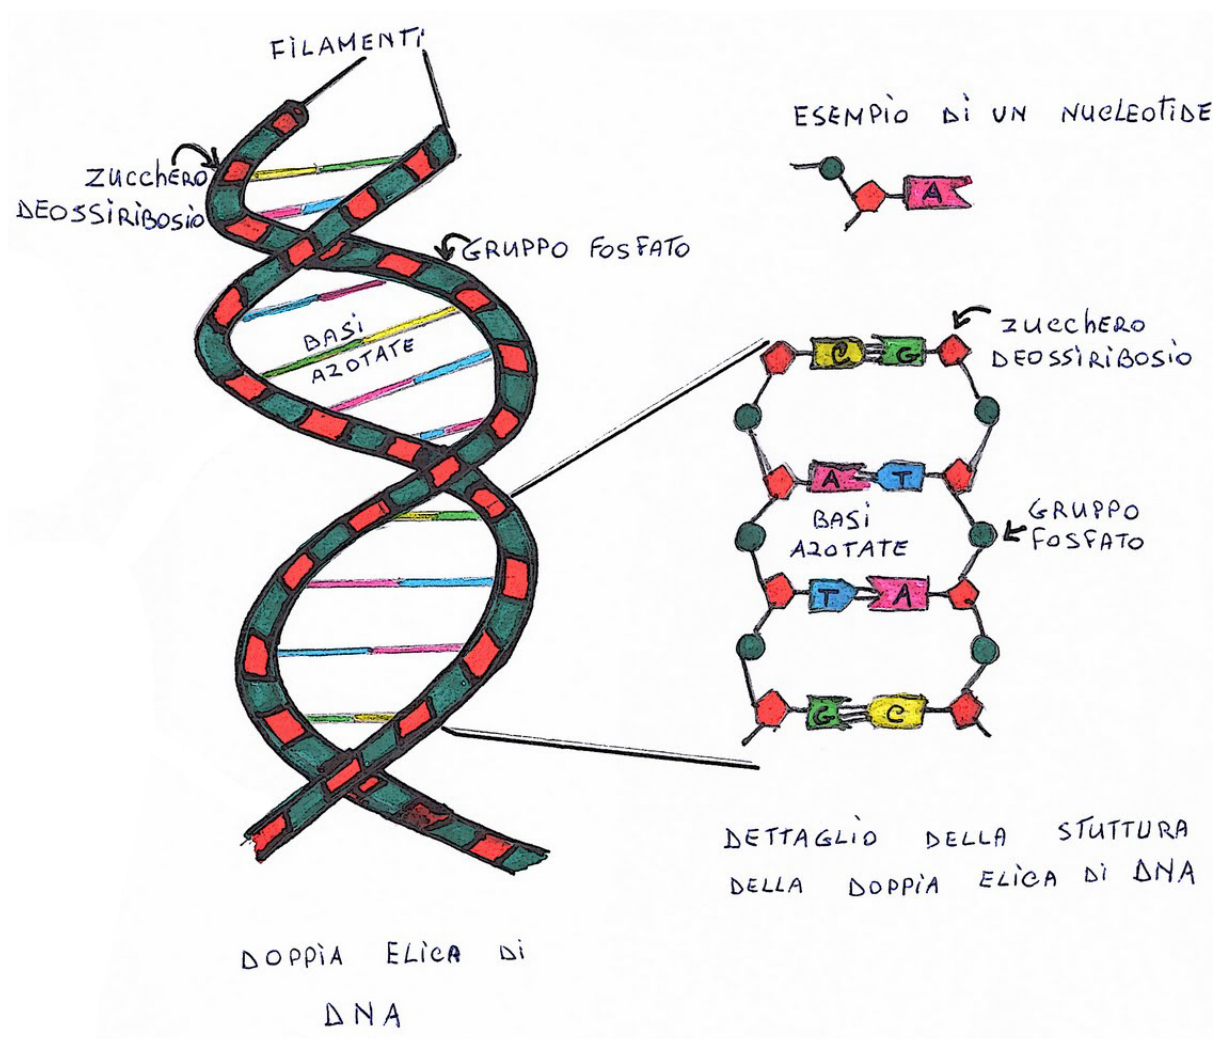 FILAMENTI
ZUCCHERO
DEOSSIRIBOSIO
GRUPPO FOSFATO
BASI
AZOTATE
DOPPIA ELICA DI
DNA
ESEMPIO DI UN NUCLEOTIDE
A
ZUCCHERO
DEOSSIRIBOSIO
C G
A T
BASI
AZOTATE
GRUPPO
FOSFATO
T A
G C
DETTAGLIO DELLA STUTTURA
DELLA DOPPIA ELICA DI DNA